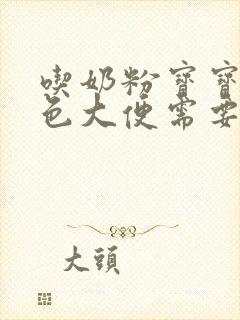 喫奶粉寶寶
色大便需要
大頭